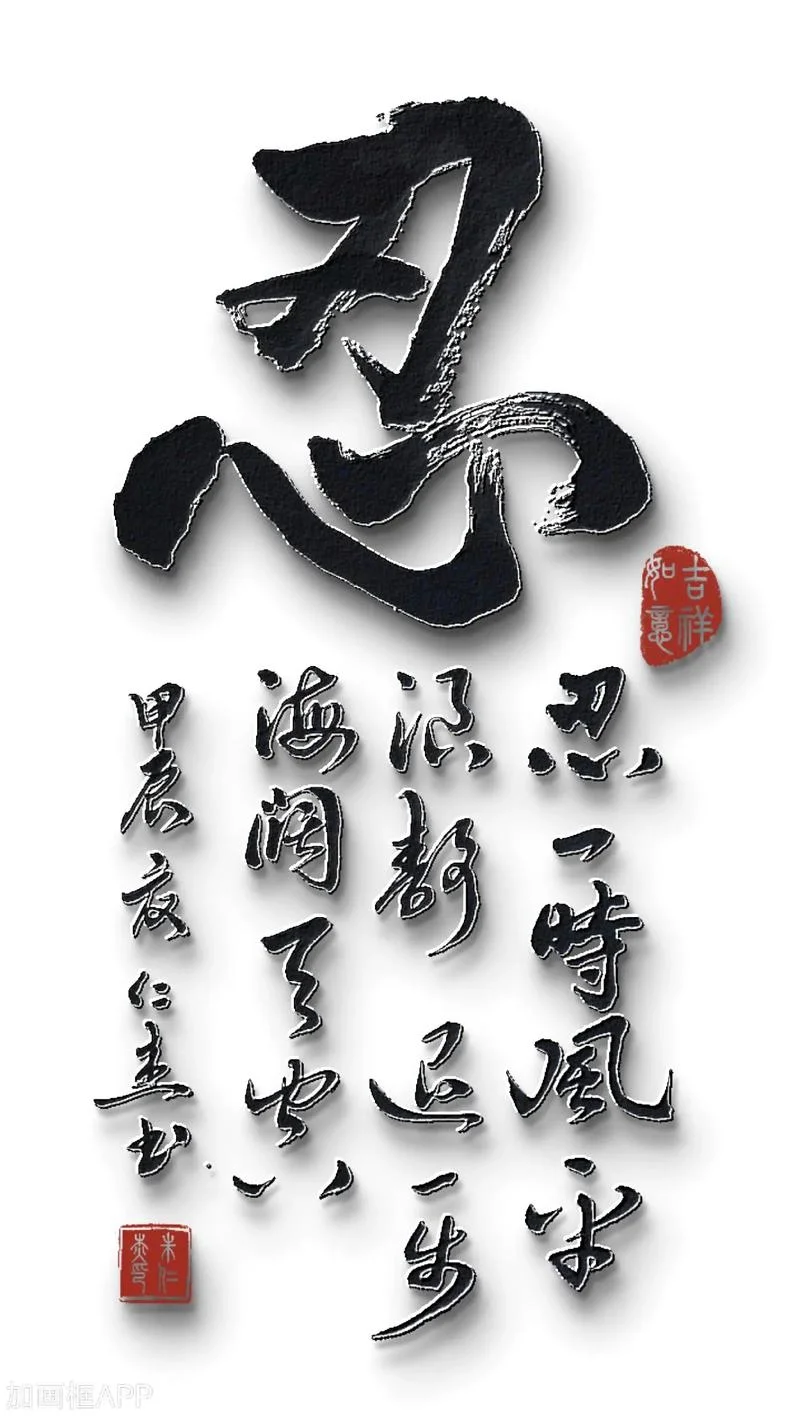 忍
吉祥
如意
忍一時風平
浪靜 退一步
海闊天空
甲辰夏仁杰书
朱仁
杰印
加画框APP